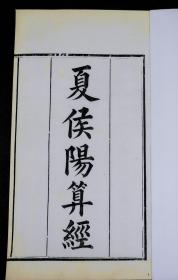 夏侯陽算經